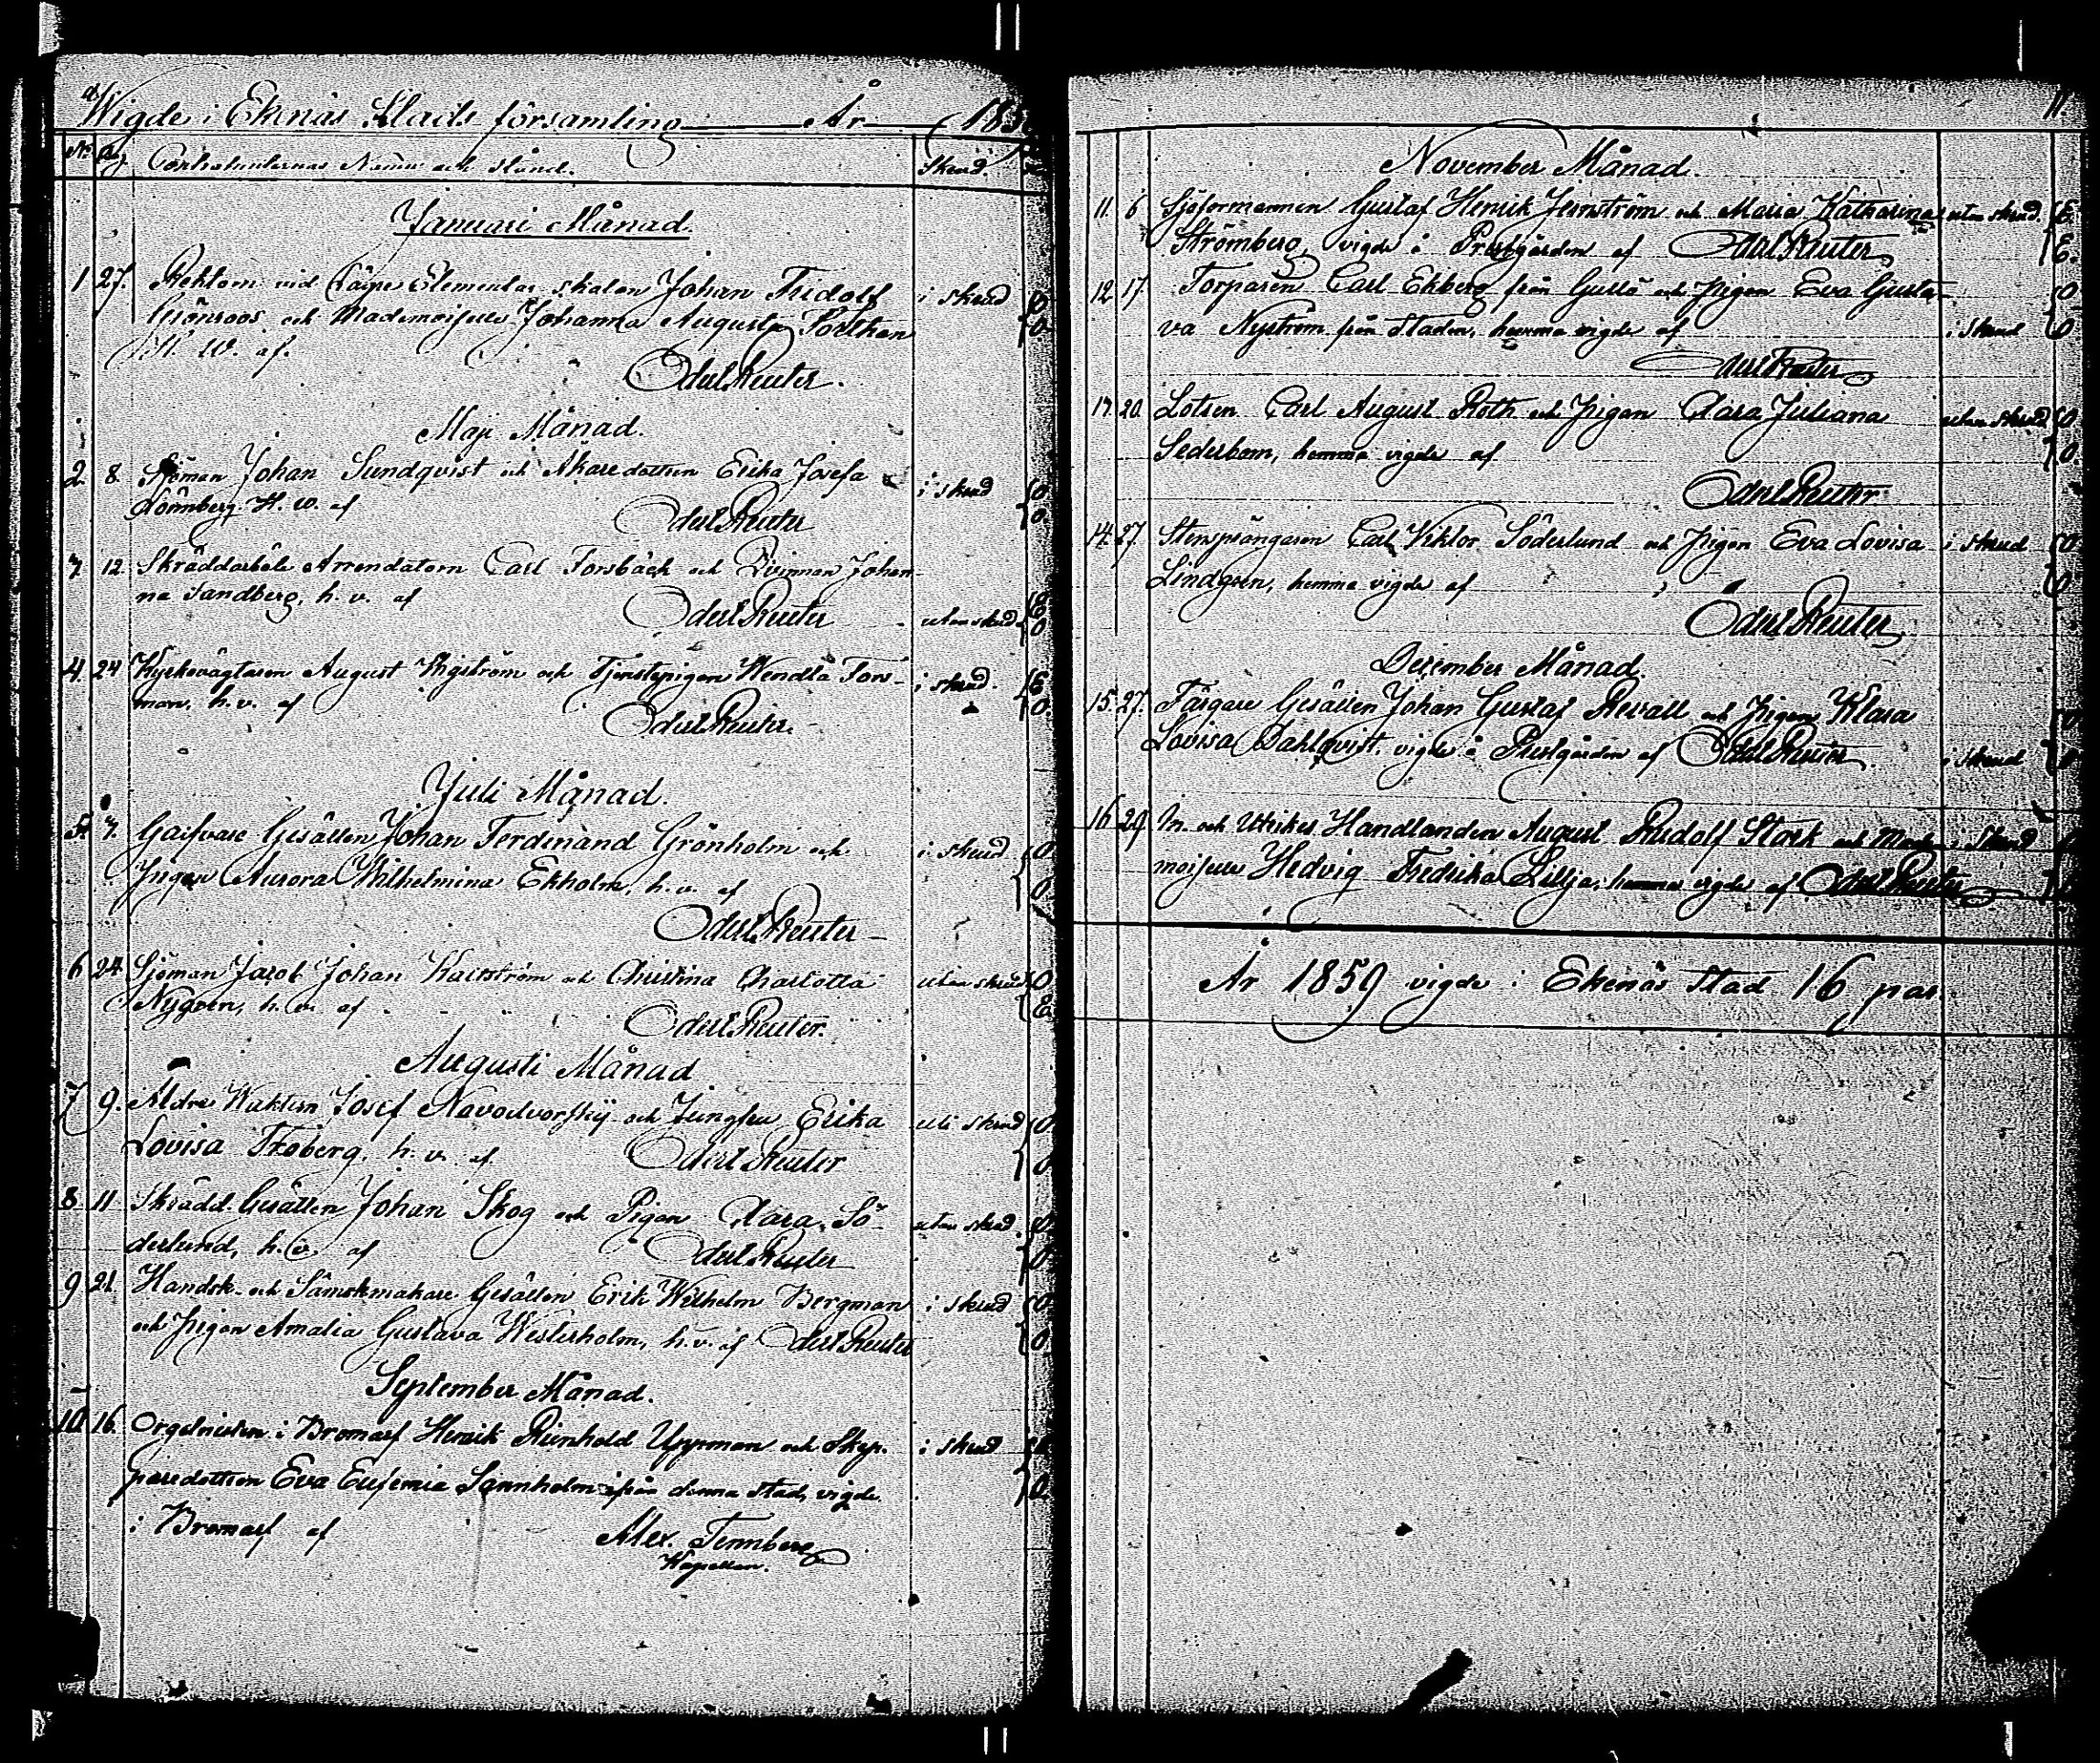 Wigde i Ekenäs Stads församling År 185
No Dag Contrahenternas Namn och stånd. Skrud.
Januari Månad.
1 27. Rektorn vid Lägre Elementar skolan Johan Fridolf i skrud O
Grönroos och Mademoiselle Johanna Augusta Porthan O
H. W. af.
Od:ert Reuter.
Maji Månad.
2. 8. Sjöman Johan Sundqvist och Åkaredottren Erika Josefa i skrud O
Lönnberg. H. w. af O
Odert Reuter
3. 12. Skräddarböle Arrendatorn Carl Forsbäck och Qvinnan Johan-
na Sandberg, h. v. af Odert Reuter utan skrud E O
4. 24 Kyrkovägtaren August Wigström och Tjenstepigan Wendla Fors- i skrud. E
man, h. v. af O
Odert Reuter.
Juli Månad.
5. 7. Garfvare Gesällen Johan Ferdinand Grönholm och i skrud O
Pigan Aurora Wilhelmina Ekholm, h. v. af O
Odert Reuter
6 24. Sjöman Jacob Johan Kallström och Christina Charlotta utan skrud O
Nygren, h. v. af E
Odert Reuter.
Augusti Månad
7 9. Äldre Wakten Josef Navodvorskij och Jungfru Erika uti skrud O
Lovisa Froberg, h. v. af Odert Reuter O
8 11 Skrädd. Gesällen Johan Skog och Pigan Clara Sö- utan skrud. O
derlund, h. v. af Odert Reuter O
9 21. Handsk- och Sämskmakare Gesällen Erik Wilhelm Bergman i skrud O
och Pigan Amalia Gustava Westerholm, h. v. af Odert Reuter O
September Månad.
10 16. Orgelnisten i Bromarf Henrik Reinhold Uppman och Skep- i skrud
paredottren Eva Eufemia Sannholm ifrån denna stad, vigde O
i Bromarf af Alex. Tennberg
Kapellan.
11.
November Månad.
11. 6 Sjöfermannen Gustaf Henrik Jernström och Maria Katharina utan skrud. E
Strömberg, vigde i Prestgården af Odert Reuter E.
12 17. Torparen Carl Ekberg från Gullö och Pigan Eva Gusta- O
va Nyström från Staden, hemma vigde af i skrud O
Odert Reuter
13. 20. Lotsen Carl August Roth och Pigan Clara Juliana utan skrud O
Sederbom, hemma vigde af O.
Odert Reuter
14. 27. Stensprängaren Carl Viktor Söderlund och Pigan Eva Lovisa i skrud O
Lindgren, hemma vigde af O
Odert Reuter
December Månad.
15. 27. Färgare Gesällen Johan Gustaf Revall och Pigan Klara
Lovisa Dahlqvist. vigde i Prestgården af Odert Reuter i skrud
16 29. In- och Utrikes Handlanden August Rudolf Stark och Made- i skrud
moiselle Hedvig Fredrika Lilja, hemma vigde af Odert Reuter
År 1859 vigde i Ekenäs Stad 16 par.